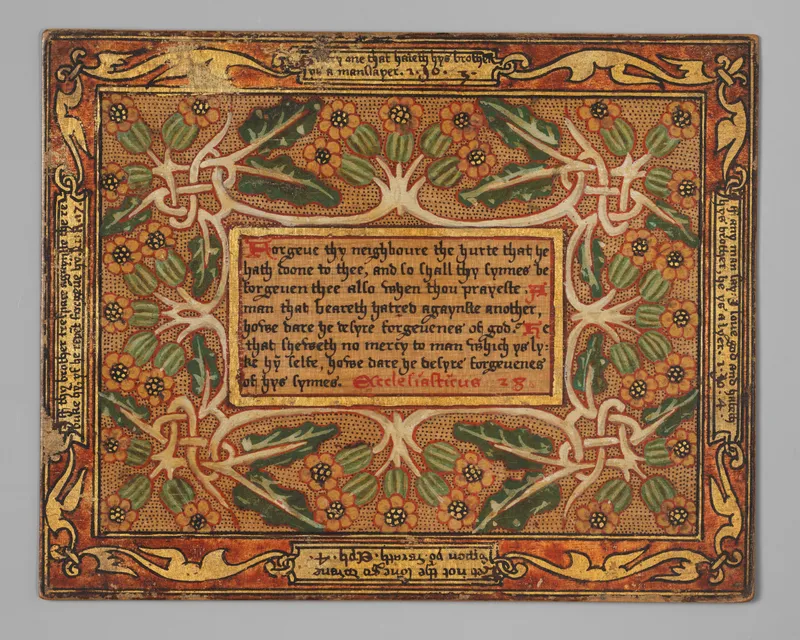 Every one that hateth hys brother
ys a manslayer. 1. Jo. 3.
Forgeue thy neighboure the hurte that he
hath doone to thee, and so shall thy synnes be
forgeuen thee also when thou prayeste. A
man that beareth hatred agaynste another,
howe dare he desyre forgeuenes of god? He
that sheweth no mercy to man which ys ly-
ke hȳ selfe, howe dare he desyre forgeuenes
of hys synnes. Ecclesiasticus 28.
If any man say I loue god and hateth
hys brother, he ys a lyer. 1. Jo. 4.
Let not the sonne go downe
vppon yo wrath. Eph. 4.
If thy brother trespace agaynste the re
buke hȳ, yf he repēt forgeue hȳ. Lu. 17